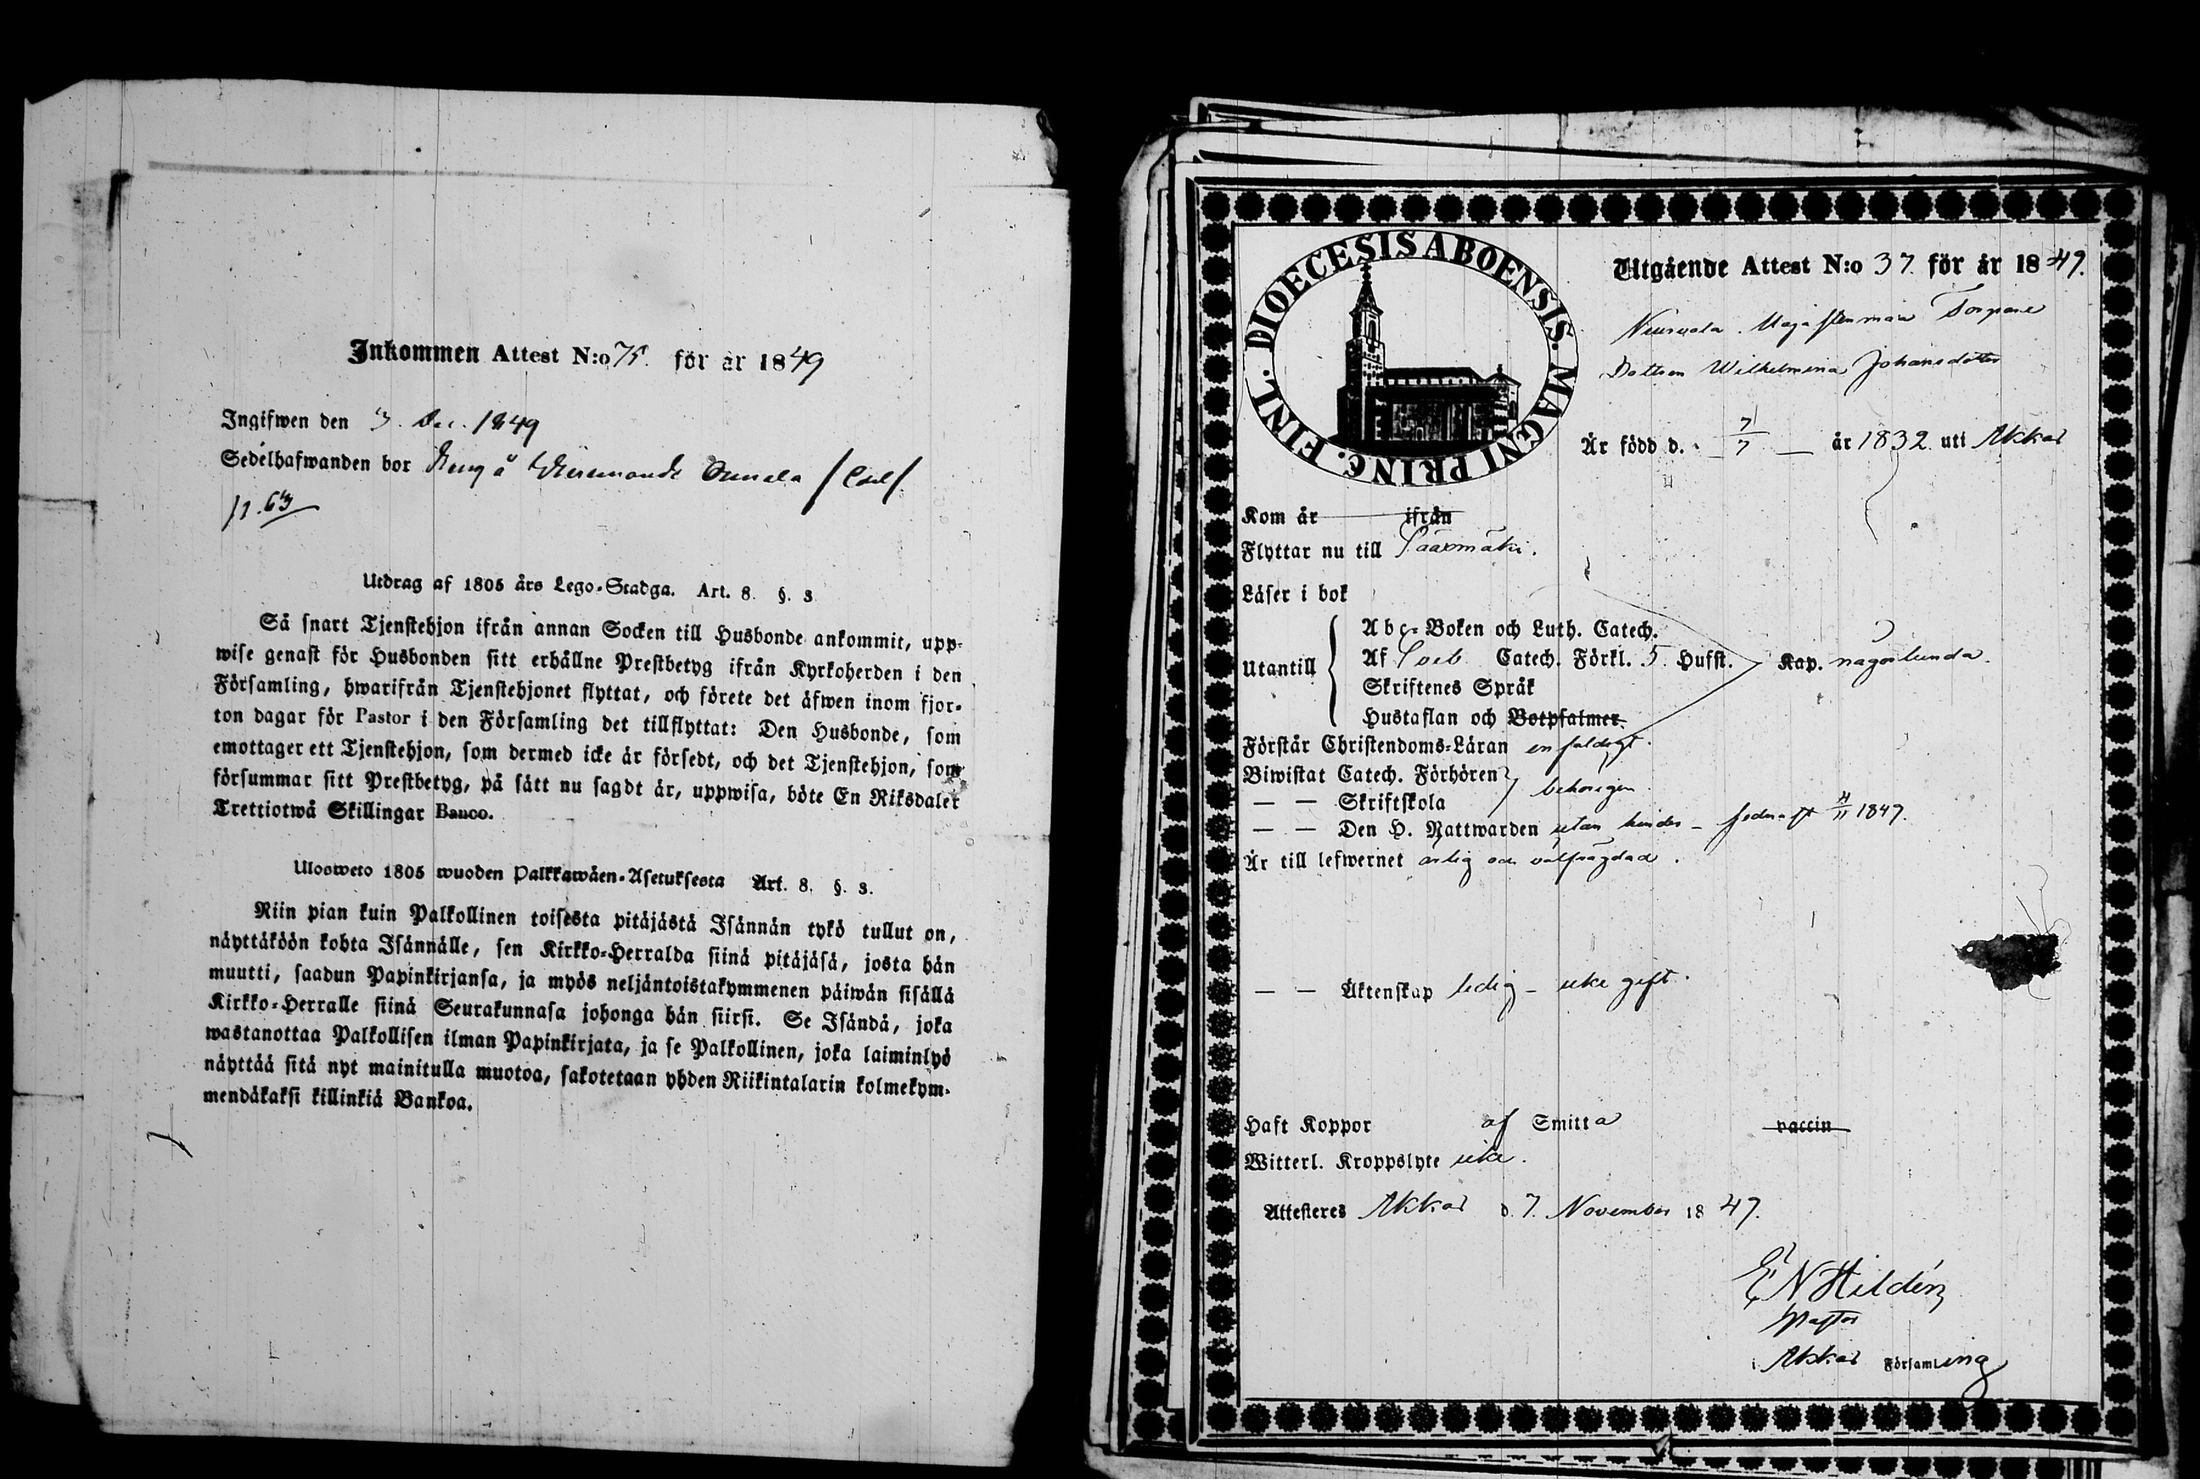 Inkommen Attest N:o 75. för år 1849
Ingifwen den 3. Dec. 1849
Sedelhafwanden bor
p. 63
Utdrag af 1805 års Lego-Stadga. Art. 8. §. 3
Så snart Tjenstehjon ifrån annan Socken till Husbonde ankommit, upp-
wise genast för Husbonden sitt erhållne Prestbetyg ifrån Kyrkoherden i den
Församling, hwarifrån Tjenstehjonet flyttat, och förete det äfwen inom fjor-
ton dagar för Pastor i den Församling det tillflyttat: Den Husbonde, som
emottager ett Tjenstehjon, som dermed icke är försedt, och det Tjenstehjon, som
försummar sitt Prestbetyg, på sätt nu sagdt är, uppwisa, böte En Riksdaler
Trettiotwå Skillingar Banco.
Ulosweto 1805 wuoden Palkkawäen-Asetuksesta Art. 8. §. 3.
Niin pian kuin Palkollinen toisesta pitäjästä Isännän tykö tullut on,
näyttäköön kohta Isännälle, sen Kirkko-Herralda siinä pitäjäsä, josta hän
muutti, saadun Papinkirjansa, ja myös neljäntoistakymmenen päiwän sisällä
Kirkko-Herralle siinä Seurakunnasa johonga hän siirsi. Se Isändä, joka
wastanottaa Palkollisen ilman Papinkirjata, ja se Palkollinen, joka laiminlyö
näyttää sitä nyt mainitulla muotoa, sakotetaan yhden Riikintalarin kolmekym-
mendäkaksi killinkiä Bankoa.
DIOECESIS ABOENSIS. MAGNI PRINC. FINL.
Utgående Attest N:o 37 för år 1849.
Torpare
Dottren Wilhelmina Johansdotter
Är född d. 7/7 år 1832 uti Akkas
Kom år ifrån
Flyttar nu till Sääxmäki.
Läser i bok
Utantill
Abc-Boken och Luth. Catech.
Af Sveb Catech. Förkl. 5 Hufst. Kap. någorlunda.
Skriftenes Språk
Hustaflan och Botpsalmer
Förstår Christendoms-Läran enfaldigt.
Biwistat Catech. Förhören
— — Skriftskola behörigen.
— — Den H. Nattwarden utan hinder - 4/11 1849.
Är till lefwernet ärlig och välfrägdad.
— — Äktenskap ledig - icke gift.
Haft Koppor af Smitta vaccin
Witterl. Kroppslyte icke.
Attesteres Akkas d. 7. November 1849.
E N Hildén
Pastor
i Akkas Församling